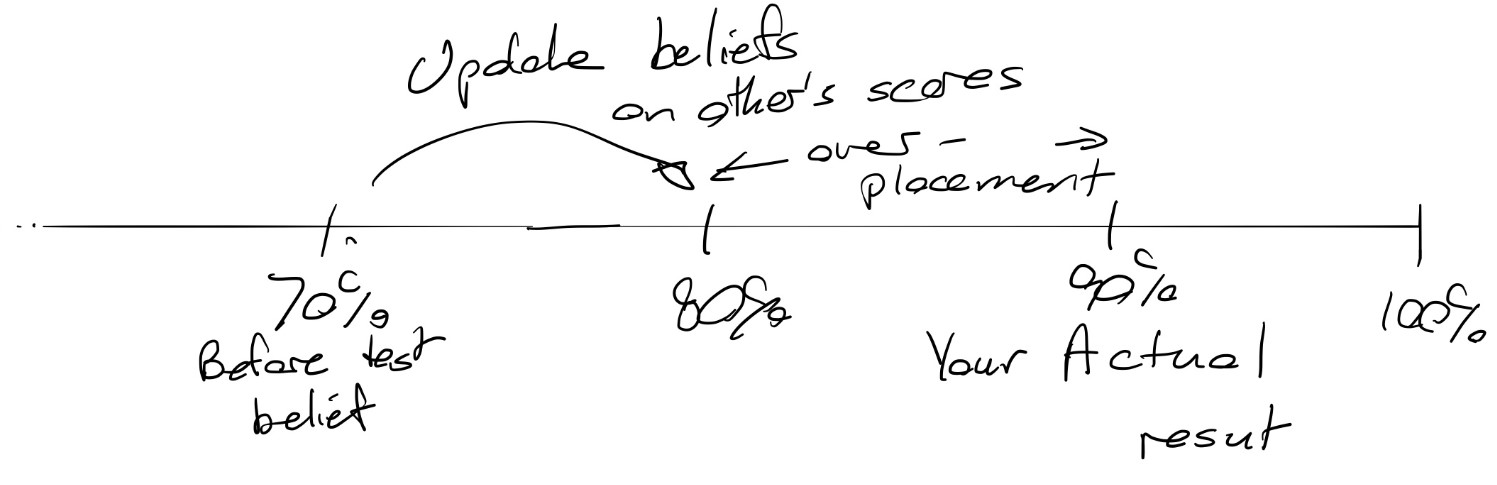 Update beliefs
on other's scores
← over- →
placement
70% 80% 90% 100%
Before test
belief
Your Actual
resut